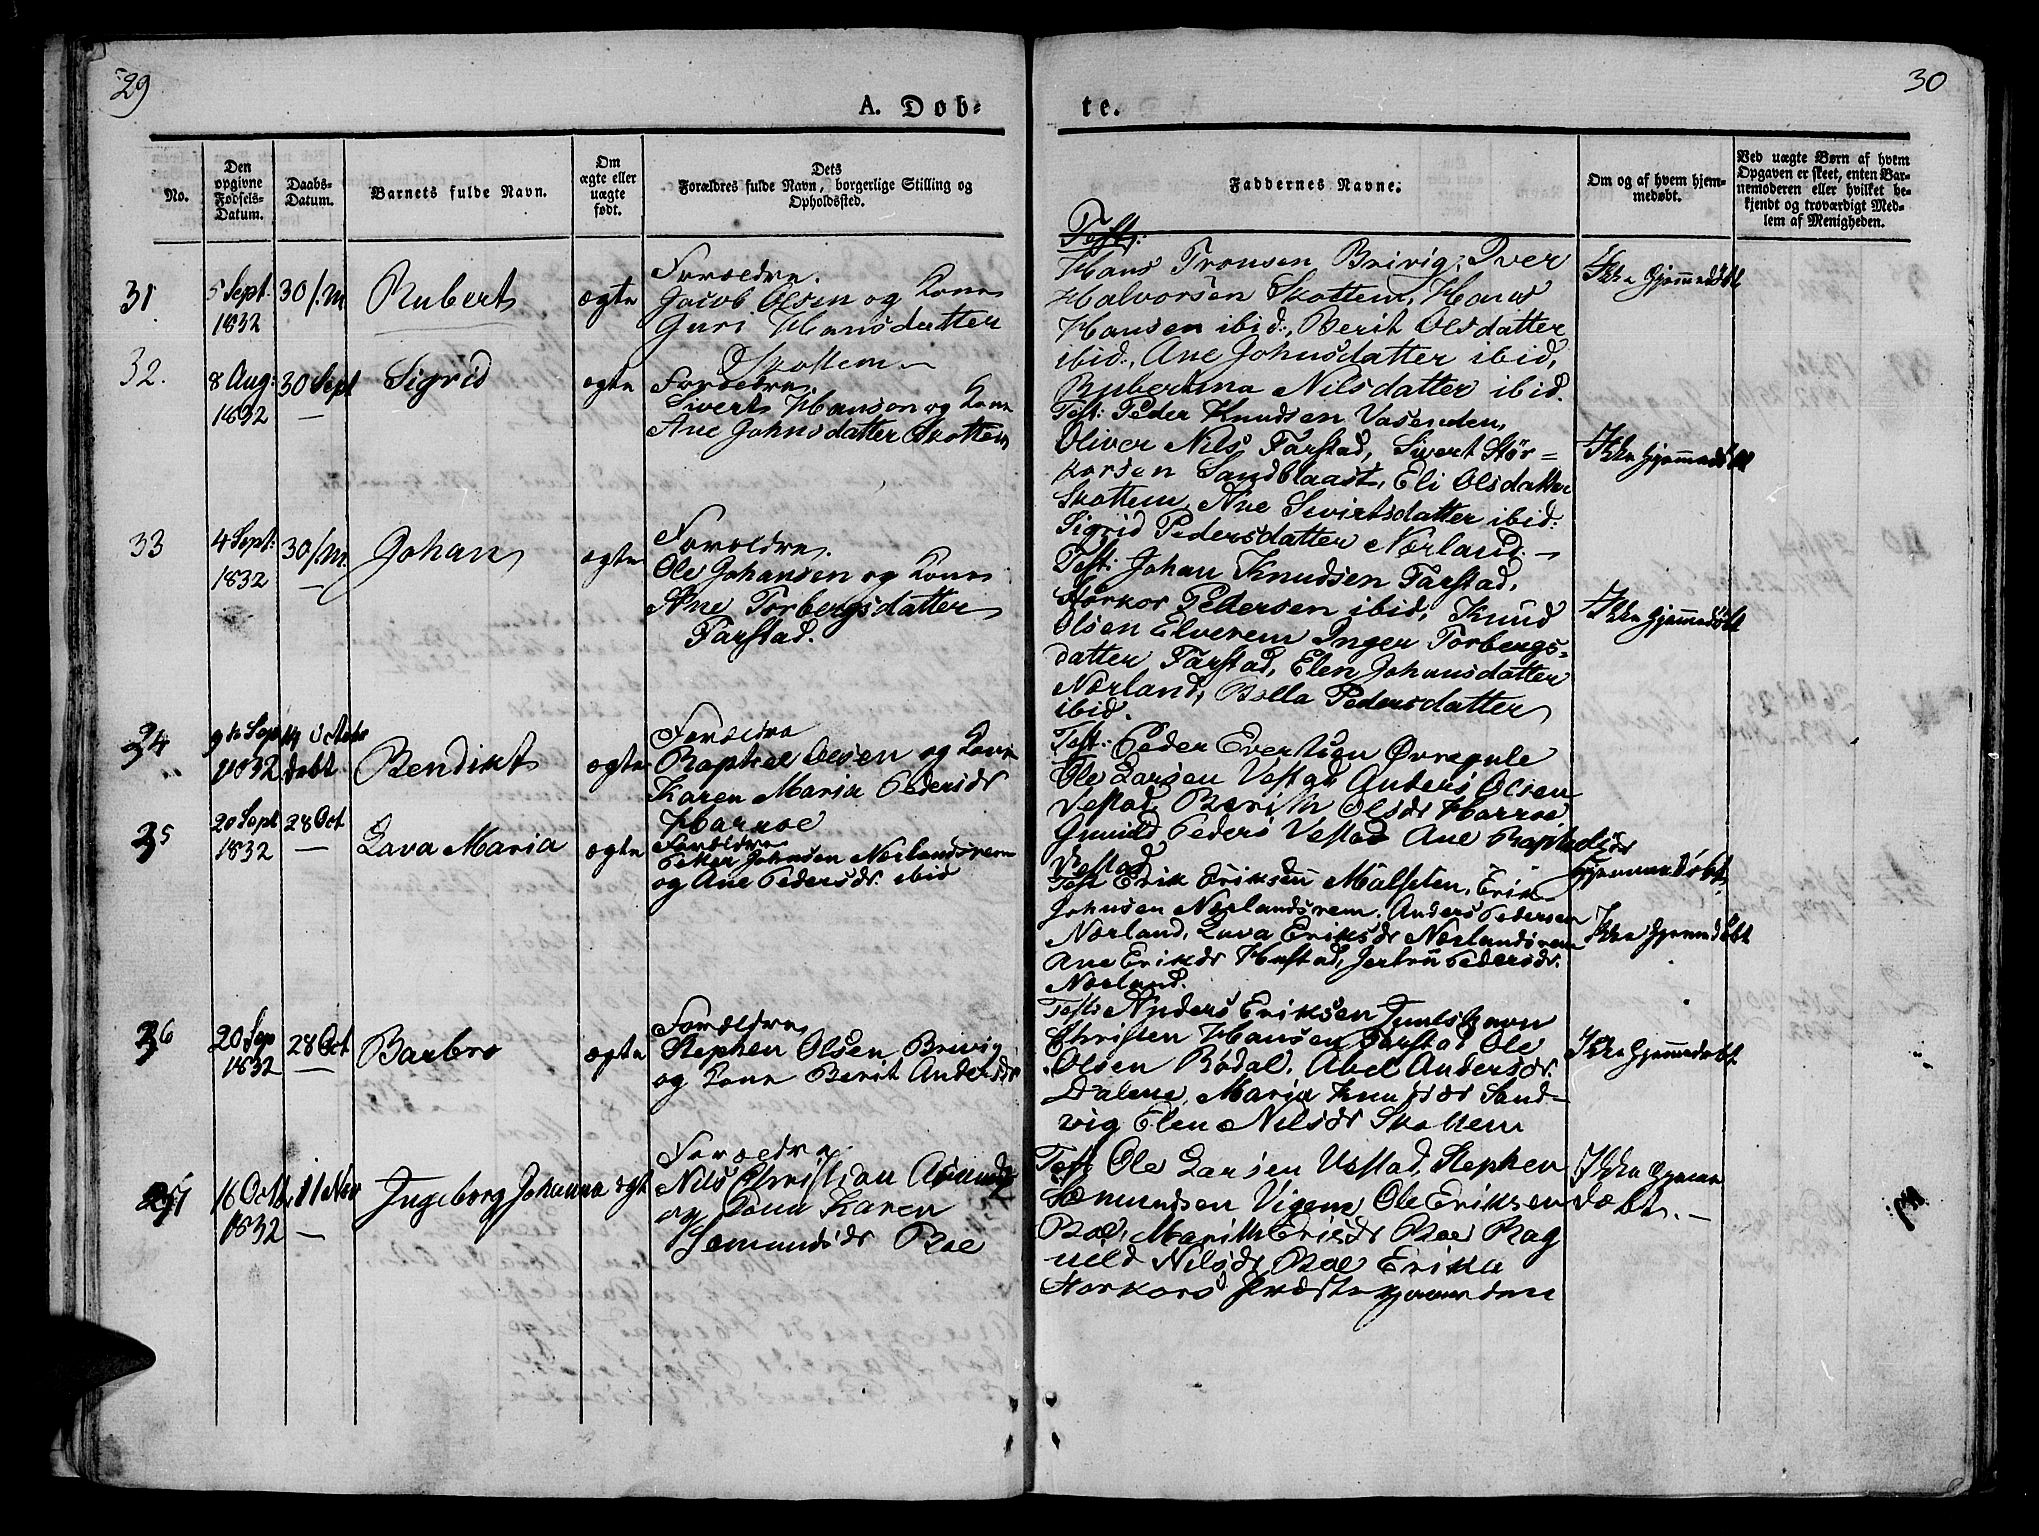 29
30
A. Døb-
te.
No.
Den opgivne Fødsels-Datum.
Daabs-Datum.
Barnets fulde Navn.
Om ægte eller uægte født.
Dets
Forældres fulde Navn, borgerlige Stilling og
Opholdssted.
Faddernes Navne.
Om og af hvem hjem-
medøbt.
Ved uægte Børn af hvem
Opgaven er skeet, enten Bar-
nemoderen eller hvilket be-
kjendt og troværdigt Med-
lem af Menigheden.
31
5 Sept.
1832
30 /. M
Rubert
ægte
Forældre.
Jacob Olsen og Kone
Guri Hansdatter
Skottem
Test:
Hans Tronsen Brivig, Iver
Halvorsen Skottem, Hans
Hansen ibid:, Berit Olsdatter
ibid:, Ane Johnsdatter ibid,
Rubertina Nilsdatter ibid.
Ikke Hjemmedøbt
32.
8 Aug:
1832
30 Sept
Sigrid
ægte
Forældre.
Sivert Hanson og Kone
Ane Johnsdatter Skottem
Test: Peder Knudsen Vasenden,
Oliver Nils Farstad, Sivert Stör=
korsen Sandblaast, Eli Olsdatter
Skottem, Ane Sivertsdatter ibid:
Sigrid Pedersdatter Nørland. —
Ikke Hjemmedøbt
33
4 Sept:
1832
30 /. M.
Johan
ægte
Forældre.
Ole Johansen og Kone
Ane Torbergsdatter
Farstad.
Test: Johan Knudsen Farstad,
Storkor Pedersen ibid, Knud
Olsen Elverem, Inger Torbergs=
datter Farstad, Elen Johansdatter
Nørland, Bolla Pedersdatter
ibid.
Ikke Hjemmedøbt
34
9de Sept
1832
14 Octobr
døbt
Bendikt
ægte
Forældre
Raphael Olsen og Kone
Karen Maria Pedersdr
Harroe
Test: Peder Evertsen
Ole Larsen Vestad Anders Olsen
Vestad, Berith Olsdr Harroe,
Gunild Peders Vestad Ane Raphaelsdr
Vestad
Hjemmedøbt
35
20 Sept
1832
28 Oct
Lava Maria
ægte
Forældre
Peter Johnsen Nørlandsrem
og Ane Pedersdr. ibid
Test Erik Eriksen Malseten, Erik
Johnsen Nørlandsrem. Anders Pedersen
Nørland, Lava Eriksdr Nørlandsrem
Ane Eriksdr Hustad, Jertru Pedersdr.
Nørland.
Ikke Hjemmedøbt
36
20 Sep
1832
28 Oct
Barbro
ægte
Forældre
Stephen Olsen Brivig
og Kone Berit Andersdr
Test: Anders Eriksen
Christen Hansen Farstad Ole
Olsen Rødal, Abel Andersdr.
Dalene, Maria Knudsdr Sand-
vig Elen Nilsdr Skottem
Ikke Hjemmedøbt
37
16 Octb
1832
11 Nov
Ingeborg Johanna
ægt
Forældre
Nils Christian
og Kone Karen
Semundsdr Boe
Test: Ole Larsen Vestad, Stephen
Sæmundsen Vigene Ole Eriksen
Boe, Marith Eriksdr Boe Rag
nild Nilsdr Boe Erika
Storkors Præstegaarden
Ikke Hjemme
døbt. —